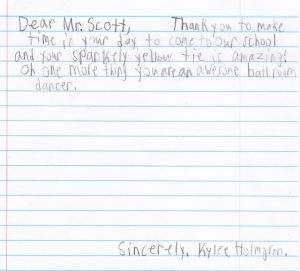 Dear Mr. Scott, Thank you to make
time in your day to come to our school
and your sparkely yellow tie is amazing!
Oh one more thing you are an awesome ball room
dancer.
Sincerely, Kylee Holmgren.